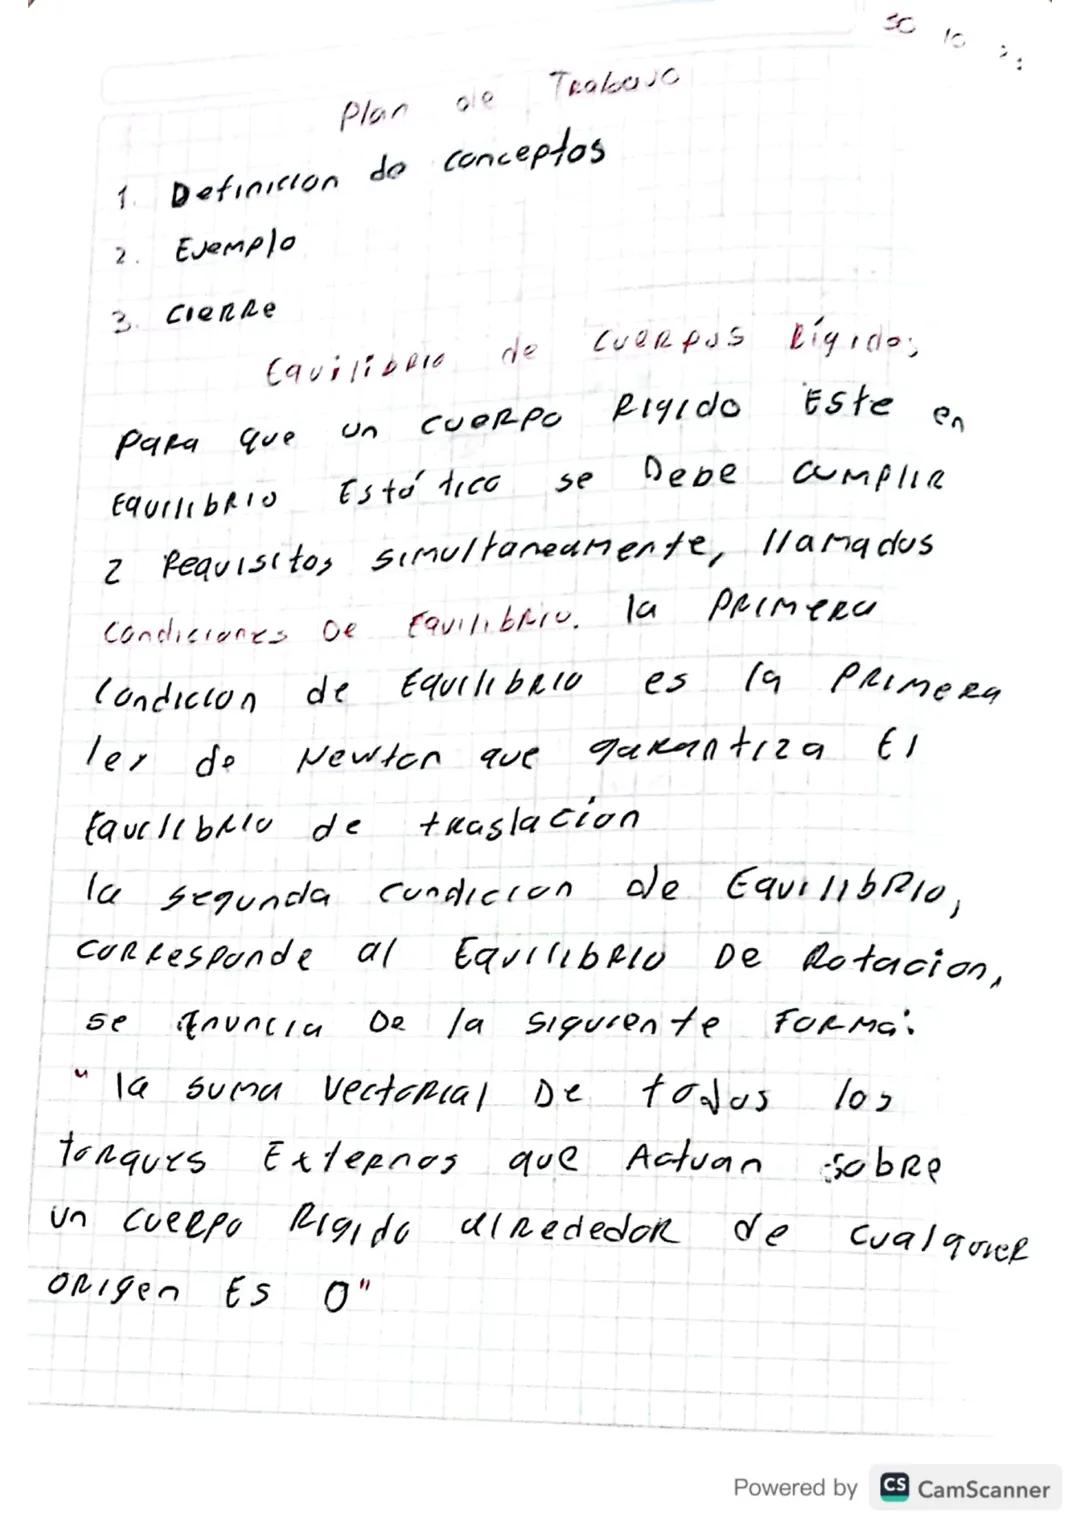 30 10
Plan de Trabajo
1. Definicion de conceptos
2. Ejemplo
3. Cierre
Equilibrio de Cuerpos Rígidos
Para que un cuerpo Rigido Este en
Equilibrio Estático se Debe cumplir
2 Requisitos simultaneamente, llamados
Condiciones De Equilibrio. la primera
Condicion de Equilibrio es la primera
ley de Newton que garantiza El
Equilibrio de traslacion
la segunda condicion de Equilibrio,
corresponde al Equilibrio De Rotacion,
se Enuncia De la siguiente Forma:
"la suma vectorial De todos los
torques Externos que Actuan sobre
un cuerpo Rigido alrededor de cualquier
origen Es 0"
Powered by CS CamScanner